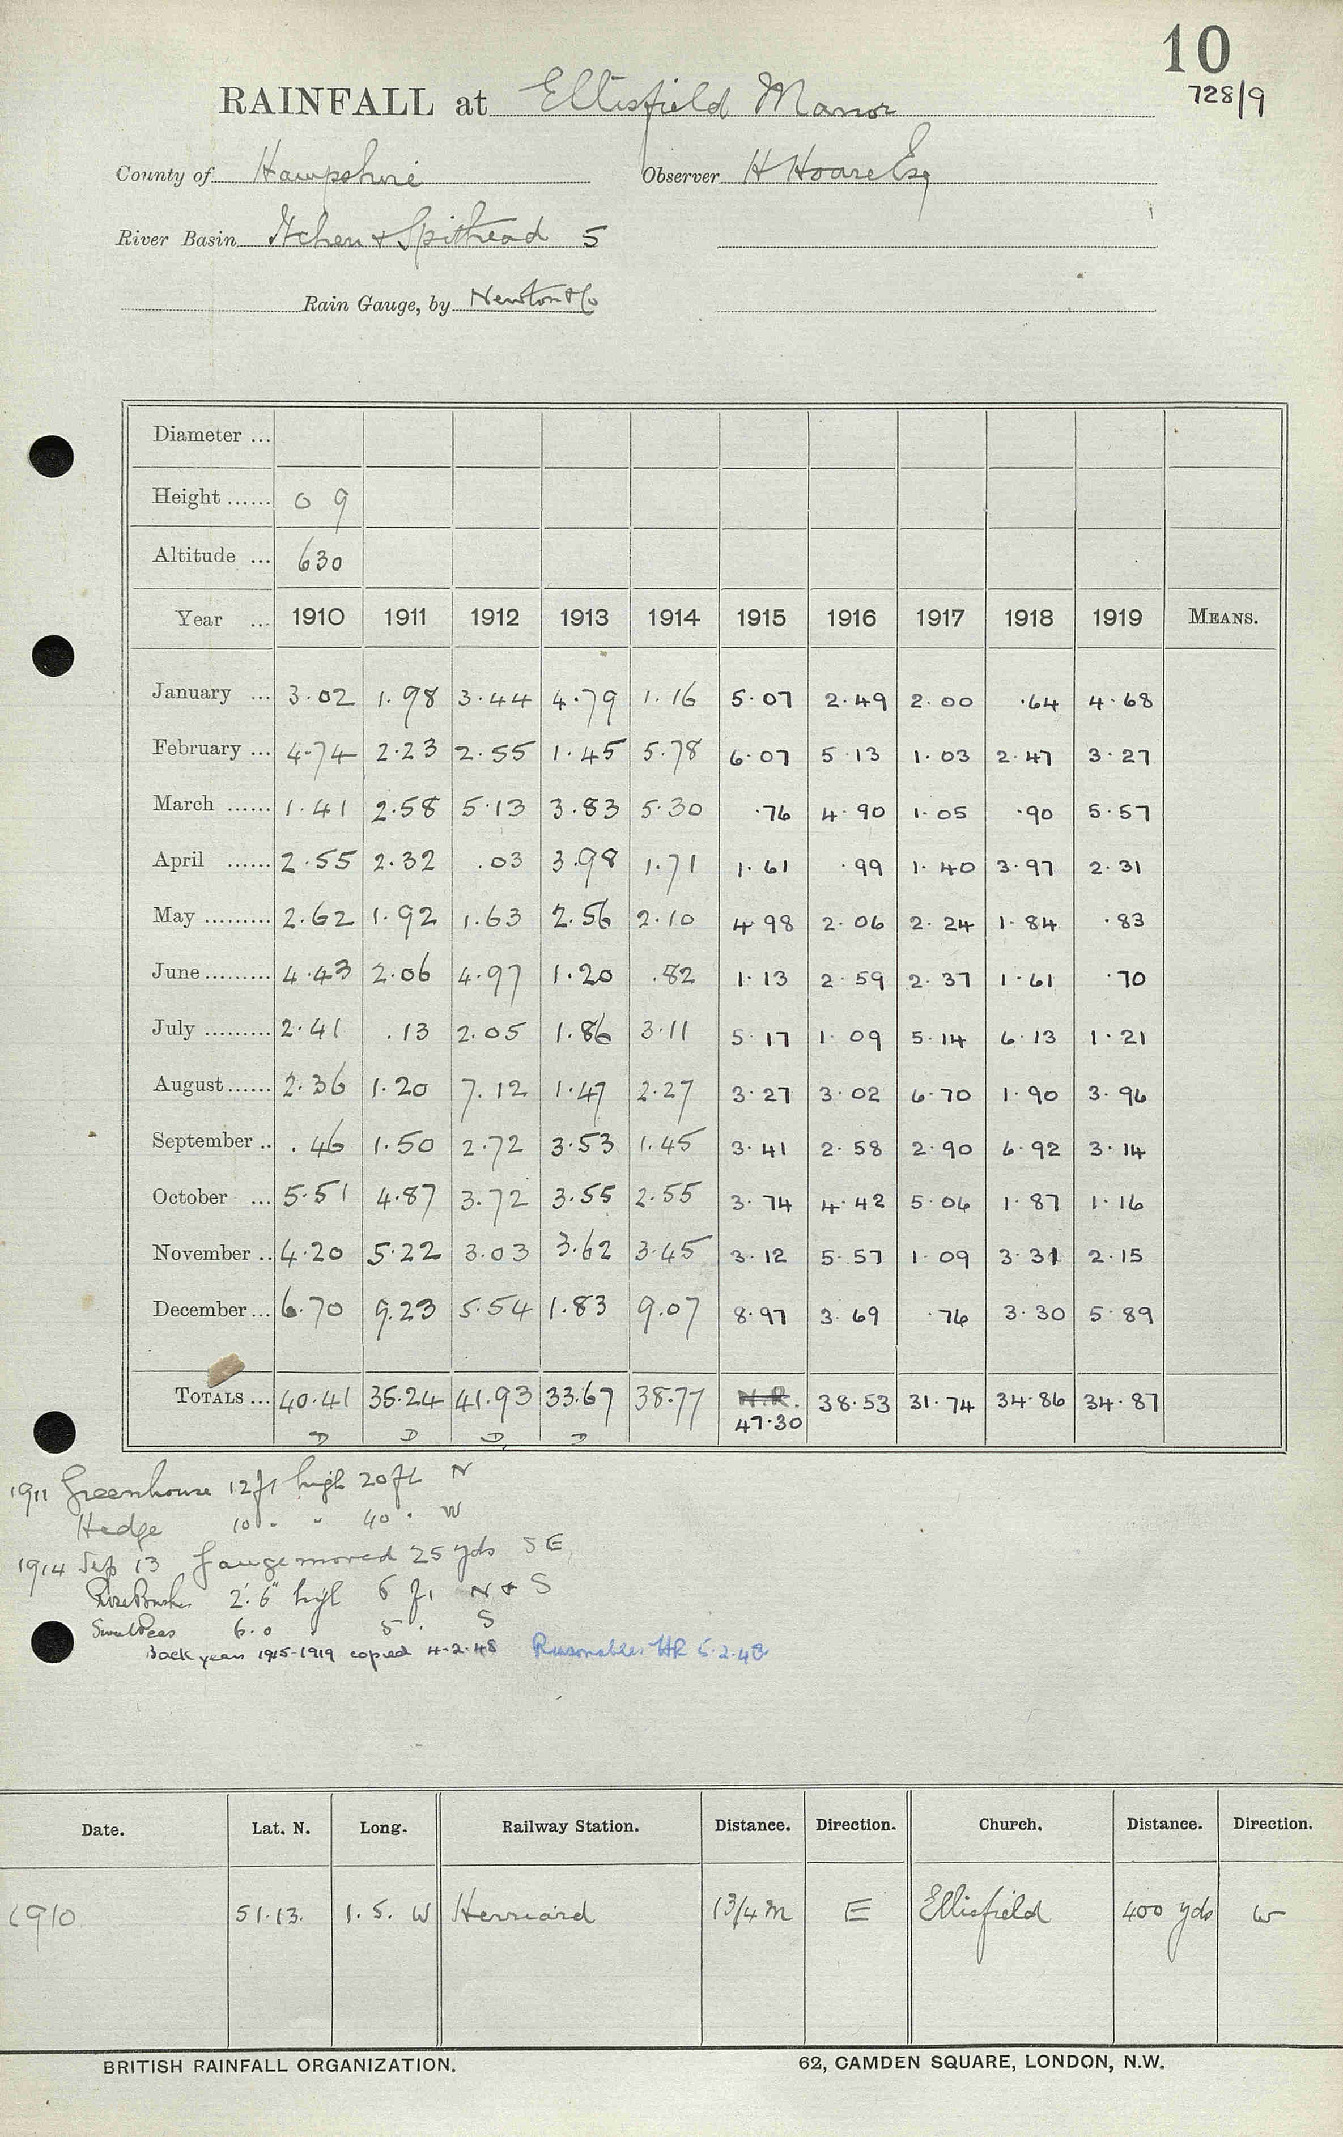 10
728/9
RAINFALL at Ellisfield Manor
County of Hampshire Observer H Hoare Esq
River Basin Itchen & Spithead 5
Rain Gauge, by Newton & Co
Diameter ...
Height ...... 0 9
Altitude ... 630
Year ... 1910 1911 1912 1913 1914 1915 1916 1917 1918 1919 MEANS.
January ... 3.02 1.98 3.44 4.79 1.16 5.07 2.49 2.00 .64 4.68
February ... 4.74 2.23 2.55 1.45 5.78 6.07 5.13 1.03 2.47 3.27
March ...... 1.41 2.58 5.13 3.83 5.30 .76 4.90 1.05 .90 5.57
April ...... 2.55 2.32 .03 3.98 1.71 1.61 .99 1.40 3.97 2.31
May ......... 2.62 1.92 1.63 2.56 2.10 4.98 2.06 2.24 1.84 .83
June ......... 4.43 2.06 4.97 1.20 .82 1.13 2.59 2.37 1.61 .70
July ......... 2.41 .13 2.05 1.86 3.11 5.17 1.09 5.14 6.13 1.21
August ...... 2.36 1.20 7.12 1.47 2.27 3.27 3.02 6.70 1.90 3.96
September .. .46 1.50 2.72 3.53 1.45 3.41 2.58 2.90 6.92 3.14
October ... 5.51 4.87 3.72 3.55 2.55 3.74 4.42 5.06 1.87 1.16
November .. 4.20 5.22 3.03 3.62 3.45 3.12 5.57 1.09 3.31 2.15
December ... 6.70 9.23 5.54 1.83 9.07 8.97 3.69 .76 3.30 5.89
TOTALS ... 40.41 35.24 41.93 33.67 38.77 N.R. 47.30 38.53 31.74 34.86 34.87
1911 Greenhouse 12ft high 20ft N
Hedge 10 " " 40 " W
1914 Sep 13 Gauge moved 25 yds SE
Rose Bushes 2'.6" high 6 ft N & S
Sweet Peas 6.0 5 . S
Back years 1915-1919 copied 4.2.48 Reasonable. HR 5.2.48
Date. Lat. N. Long. Railway Station. Distance. Direction. Church. Distance. Direction.
1910 51.13. 1.5. W Herriard 1 3/4 m E Ellisfield 400 yds W
BRITISH RAINFALL ORGANIZATION. 62, CAMDEN SQUARE, LONDON, N.W.